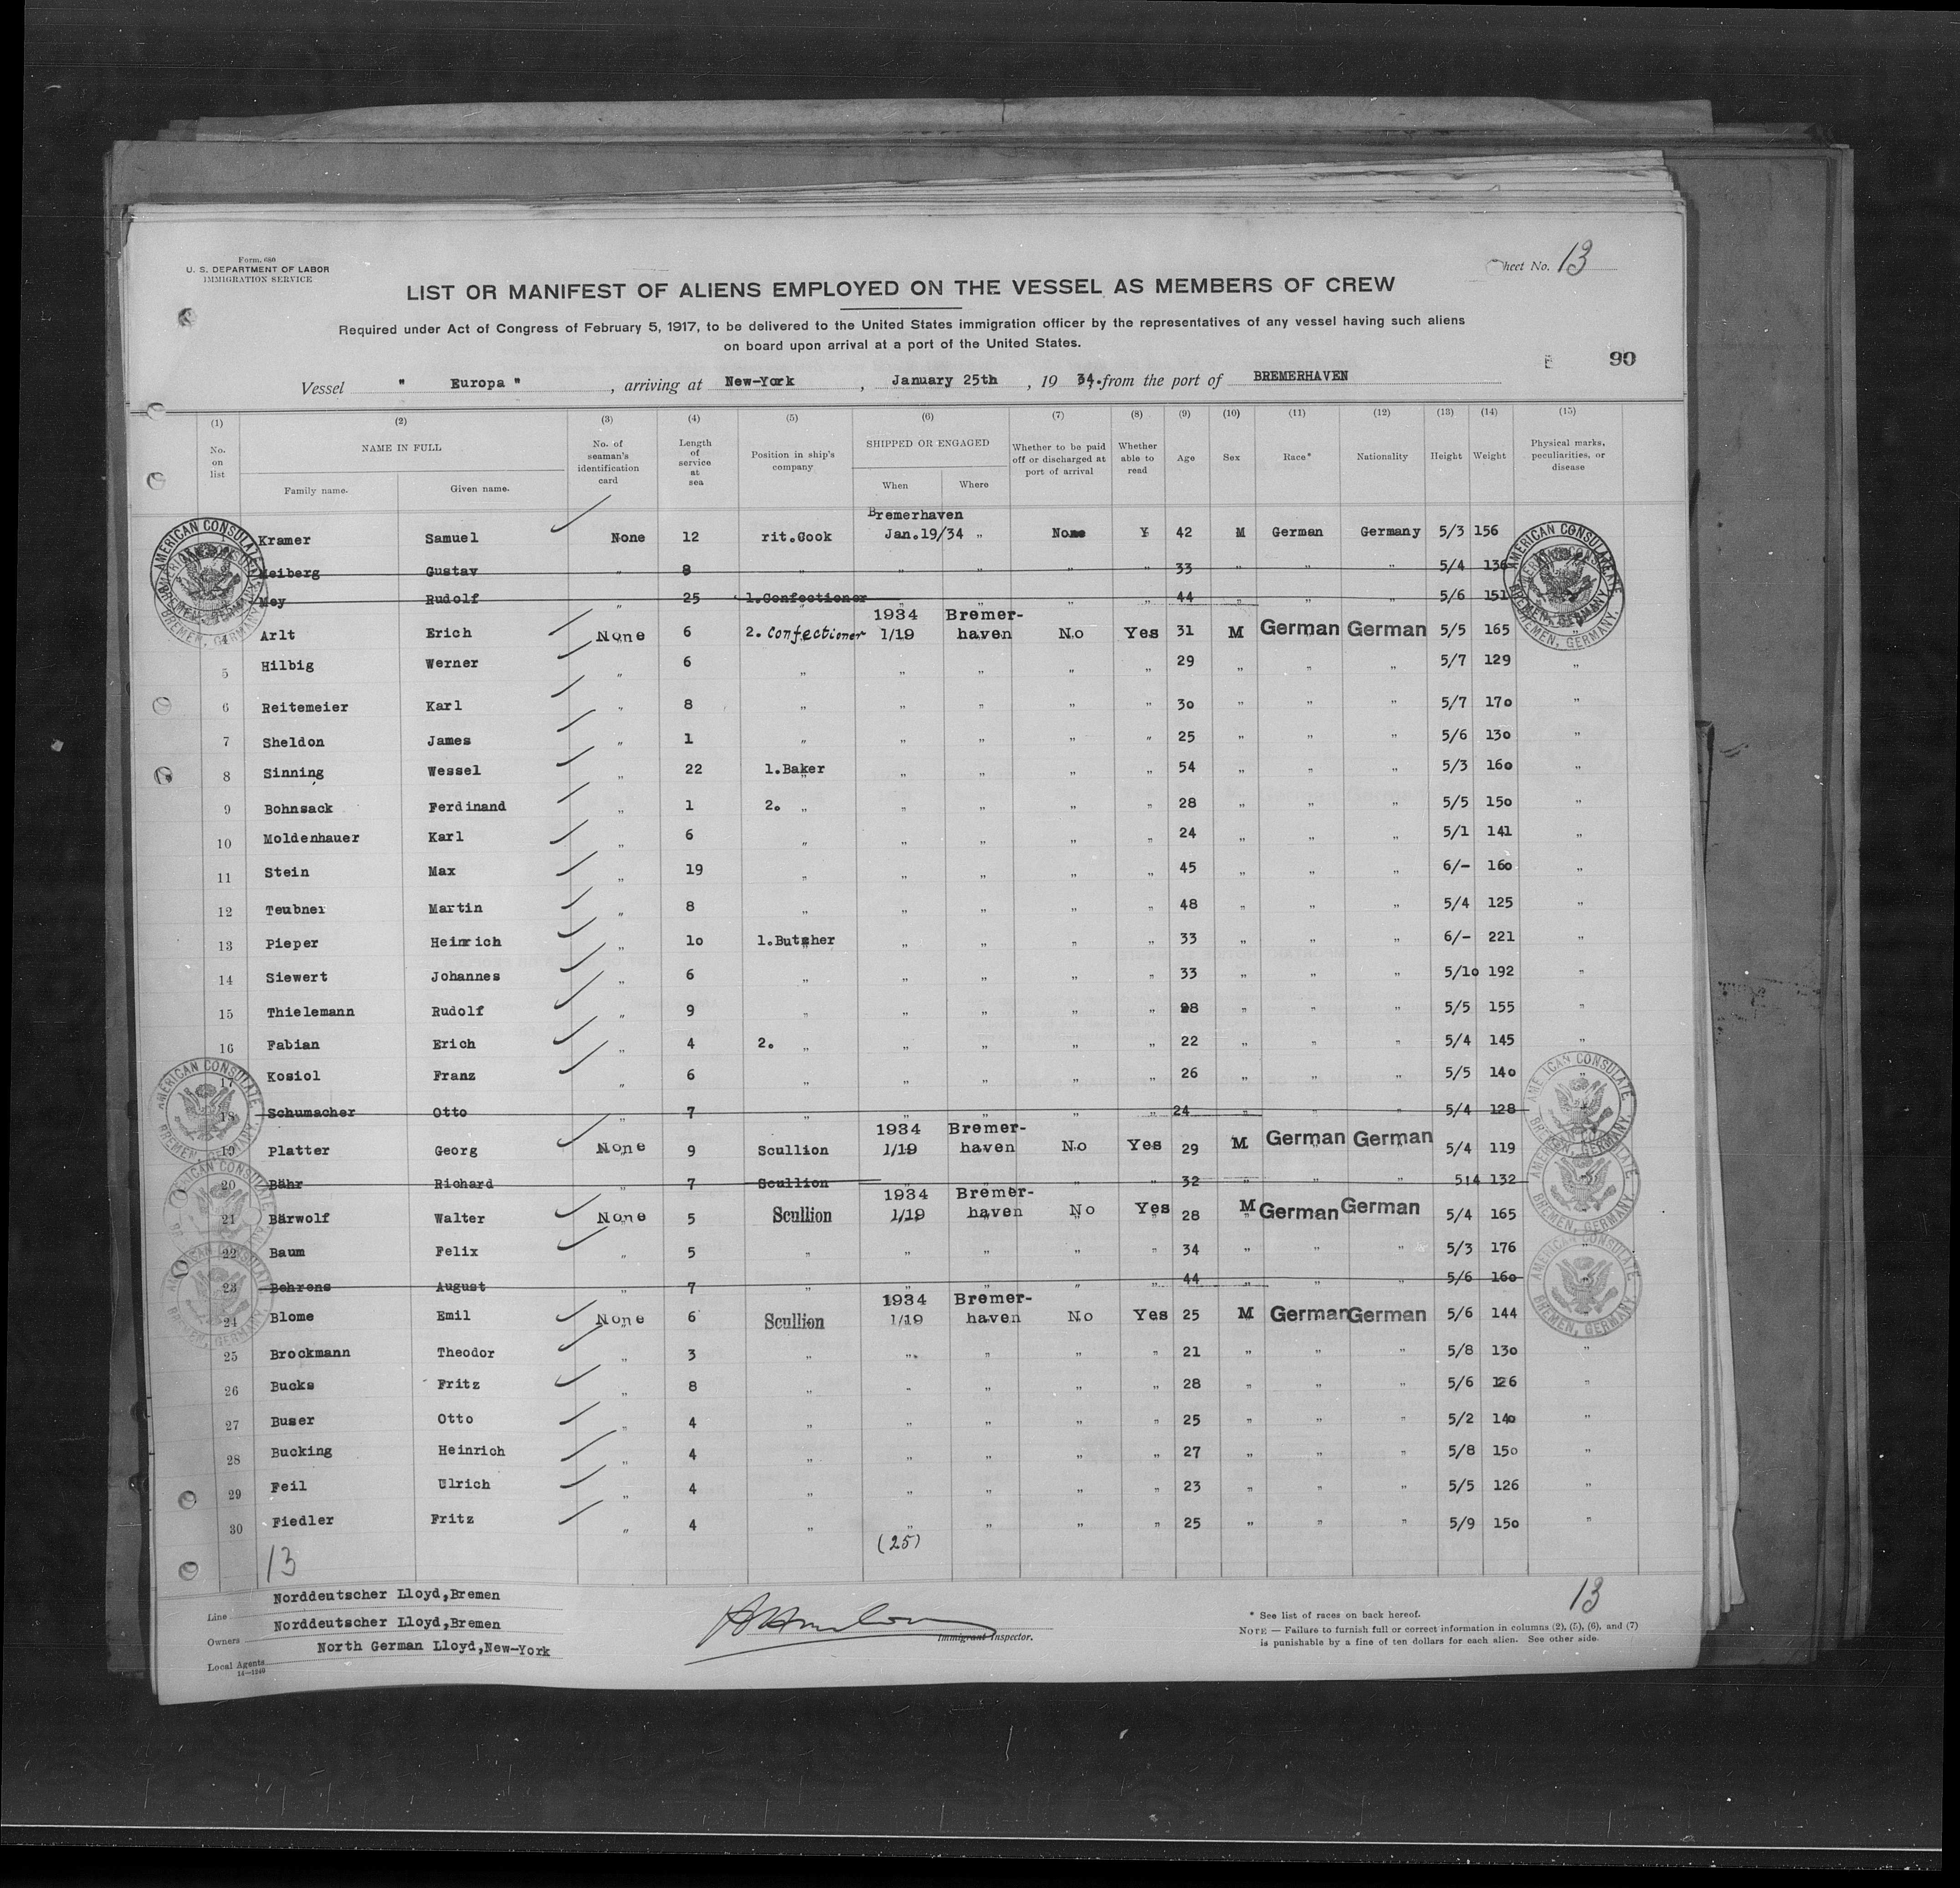 Form. 680
U. S. DEPARTMENT OF LABOR
IMMIGRATION SERVICE
Sheet No. 13
LIST OR MANIFEST OF ALIENS EMPLOYED ON THE VESSEL AS MEMBERS OF CREW
Required under Act of Congress of February 5, 1917, to be delivered to the United States immigration officer by the representatives of any vessel having such aliens
on board upon arrival at a port of the United States.
90
Vessel " Europa " , arriving at New-York , January 25th , 19 34. from the port of BREMERHAVEN
(1) (2) (3) (4) (5) (6) (7) (8) (9) (10) (11) (12) (13) (14) (15)
No. on list
NAME IN FULL
Family name. Given name.
No. of seaman's identification card
Length of service at sea
Position in ship's company
SHIPPED OR ENGAGED
When Where
Whether to be paid off or discharged at port of arrival
Whether able to read
Age
Sex
Race*
Nationality
Height
Weight
Physical marks, peculiarities, or disease
Bremerhaven
Kramer Samuel None 12 rit.Cook Jan.19/34 „ None Y 42 M German Germany 5/3 156
Meiberg Gustav „ 8 „ „ „ „ „ 33 „ „ „ 5/4 136
Mey Rudolf „ 25 1.Confectioner „ „ „ „ 44 „ „ „ 5/6 151
1934 Bremer-
4 Arlt Erich None 6 2. Confectioner 1/19 haven No Yes 31 M German German 5/5 165 „
5 Hilbig Werner „ 6 „ „ „ „ „ 29 „ „ „ 5/7 129 „
6 Reitemeier Karl „ 8 „ „ „ „ „ 30 „ „ „ 5/7 170 „
7 Sheldon James „ 1 „ „ „ „ „ 25 „ „ „ 5/6 130 „
8 Sinning Wessel „ 22 1.Baker „ „ „ „ 54 „ „ „ 5/3 160 „
9 Bohnsack Ferdinand „ 1 2. „ „ „ „ „ 28 „ „ „ 5/5 150 „
10 Moldenhauer Karl „ 6 „ „ „ „ „ 24 „ „ „ 5/1 141 „
11 Stein Max „ 19 „ „ „ „ „ 45 „ „ „ 6/- 160 „
12 Teubner Martin „ 8 „ „ „ „ „ 48 „ „ „ 5/4 125 „
13 Pieper Heinrich „ 10 1.Butcher „ „ „ „ 33 „ „ „ 6/- 221 „
14 Siewert Johannes „ 6 „ „ „ „ „ 33 „ „ „ 5/10 192 „
15 Thielemann Rudolf „ 9 „ „ „ „ „ 28 „ „ „ 5/5 155 „
16 Fabian Erich „ 4 2. „ „ „ „ „ 22 „ „ „ 5/4 145 „
17 Kosiol Franz „ 6 „ „ „ „ „ 26 „ „ „ 5/5 140 „
18 Schumacher Otto „ 7 „ „ „ „ „ 24 „ „ „ 5/4 128
1934 Bremer-
19 Platter Georg None 9 Scullion 1/19 haven No Yes 29 M German German 5/4 119
20 Bähr Richard „ 7 Scullion „ „ „ „ 32 „ „ „ 5/4 132
1934 Bremer-
21 Bärwolf Walter None 5 Scullion 1/19 haven No Yes 28 M German German 5/4 165
22 Baum Felix „ 5 „ „ „ „ „ 34 „ „ „ 5/3 176 „
23 Behrens August „ 7 „ „ „ „ „ 44 „ „ „ 5/6 160
1934 Bremer-
24 Blome Emil None 6 Scullion 1/19 haven No Yes 25 M German German 5/6 144 „
25 Brockmann Theodor „ 3 „ „ „ „ „ 21 „ „ „ 5/8 130 „
26 Bucks Fritz „ 8 „ „ „ „ „ 28 „ „ „ 5/6 126 „
27 Buser Otto „ 4 „ „ „ „ „ 25 „ „ „ 5/2 140 „
28 Bucking Heinrich „ 4 „ „ „ „ „ 27 „ „ „ 5/8 150 „
29 Feil Ulrich „ 4 „ „ „ „ „ 23 „ „ „ 5/5 126 „
30 Fiedler Fritz „ 4 „ „ „ „ „ 25 „ „ „ 5/9 150 „
(25)
13
13
Line Norddeutscher Lloyd,Bremen
Owners Norddeutscher Lloyd,Bremen
Local Agents North German Lloyd,New-York
14—1240
Immigrant Inspector.
* See list of races on back hereof.
NOTE — Failure to furnish full or correct information in columns (2), (5), (6), and (7)
is punishable by a fine of ten dollars for each alien. See other side.
AMERICAN CONSULATE BREMEN, GERMANY.
AMERICAN CONSULATE BREMEN, GERMANY.
AMERICAN CONSULATE BREMEN, GERMANY.
AMERICAN CONSULATE BREMEN, GERMANY.
AMERICAN CONSULATE BREMEN, GERMANY.
AMERICAN CONSULATE BREMEN, GERMANY.
AMERICAN CONSULATE BREMEN, GERMANY.
AMERICAN CONSULATE BREMEN, GERMANY.